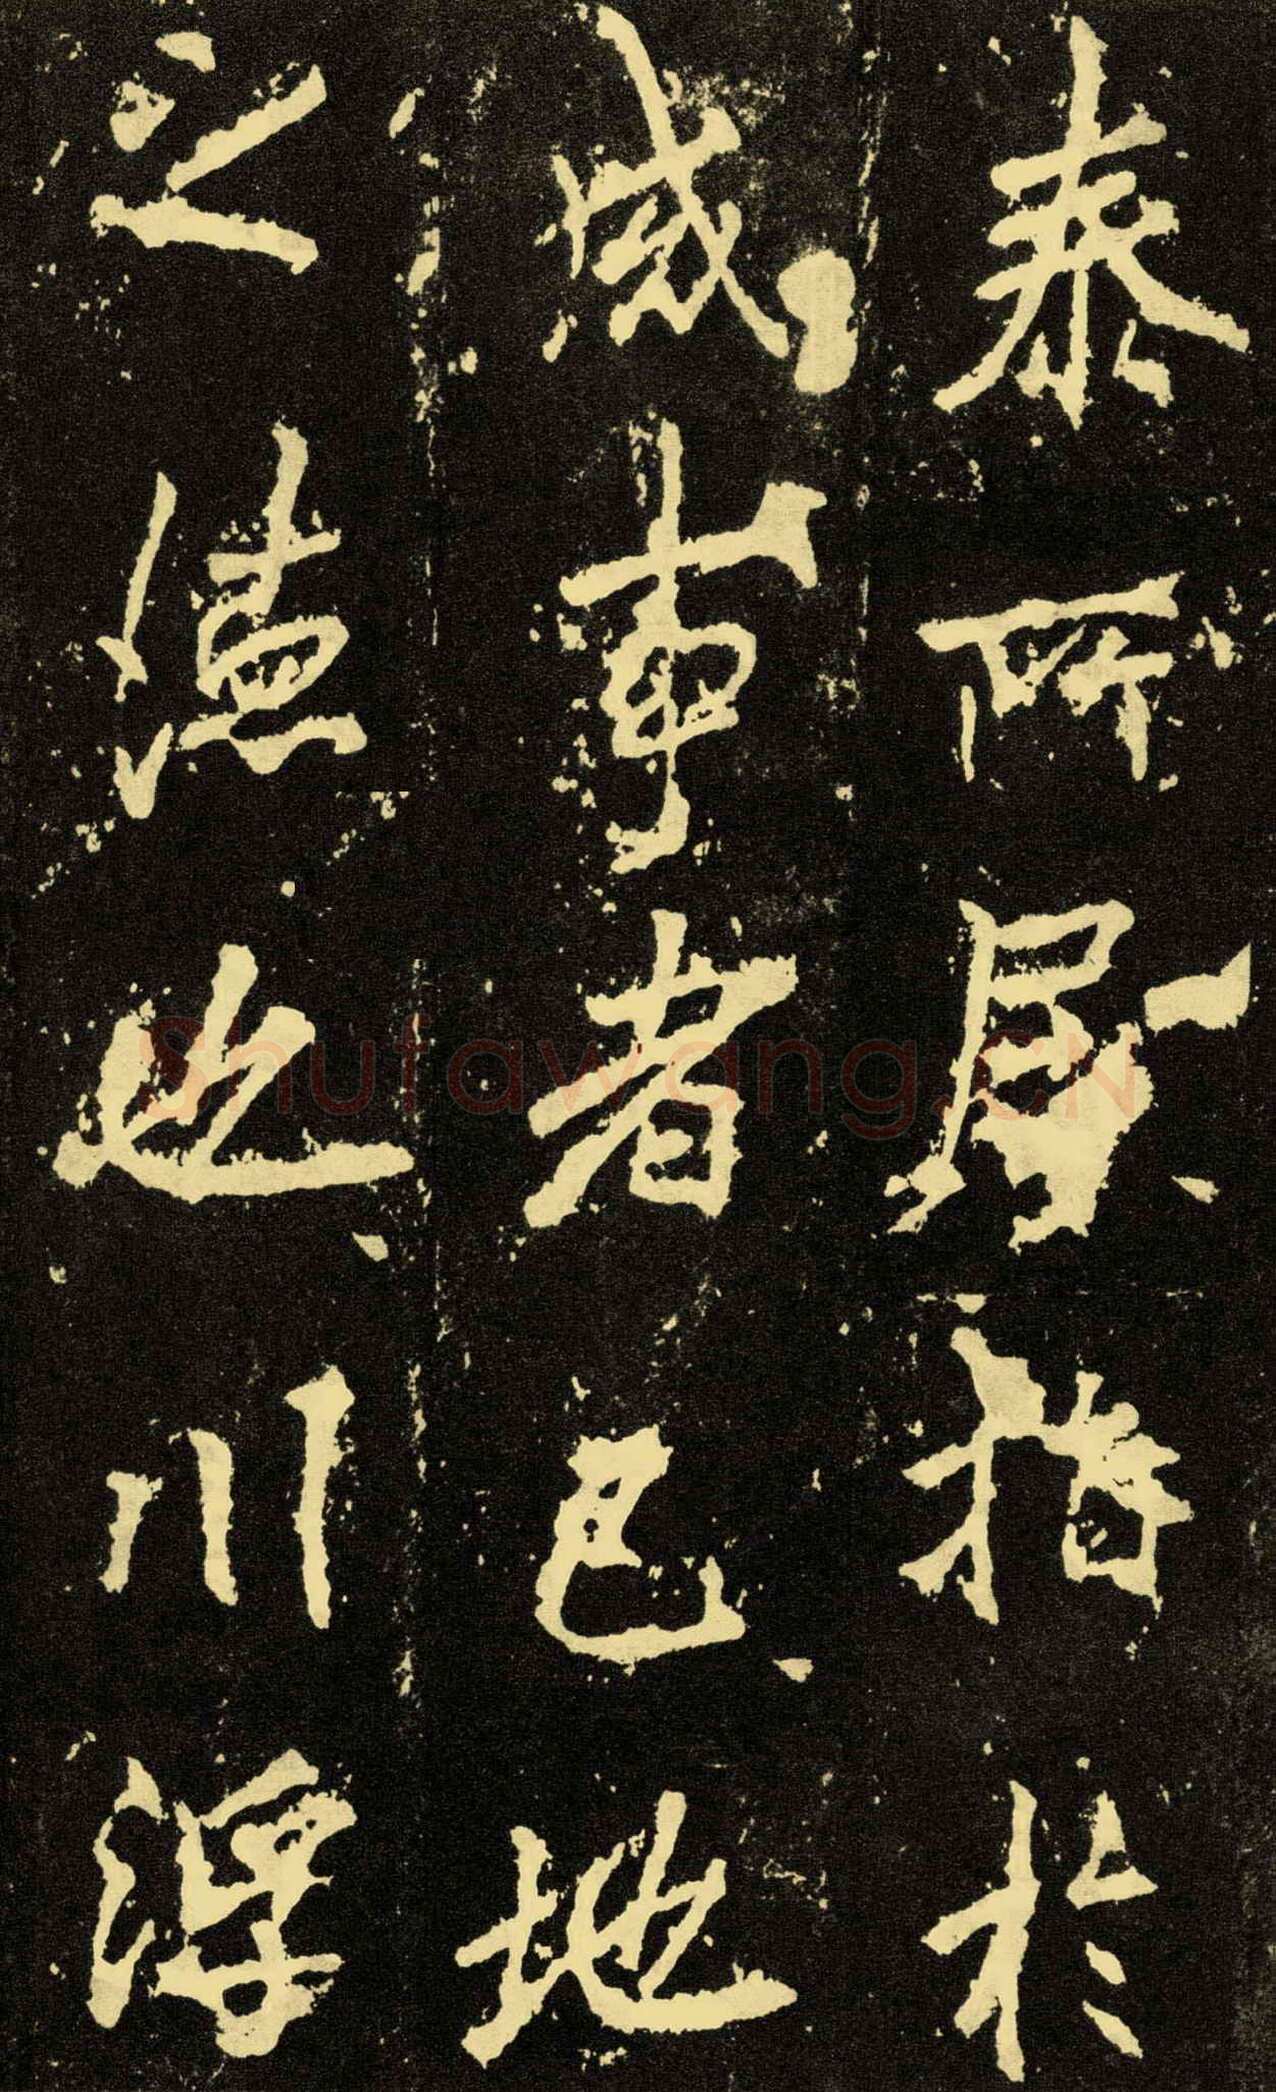 泰所居指於
成事者已地
之德也川浮
Shufawang.CN